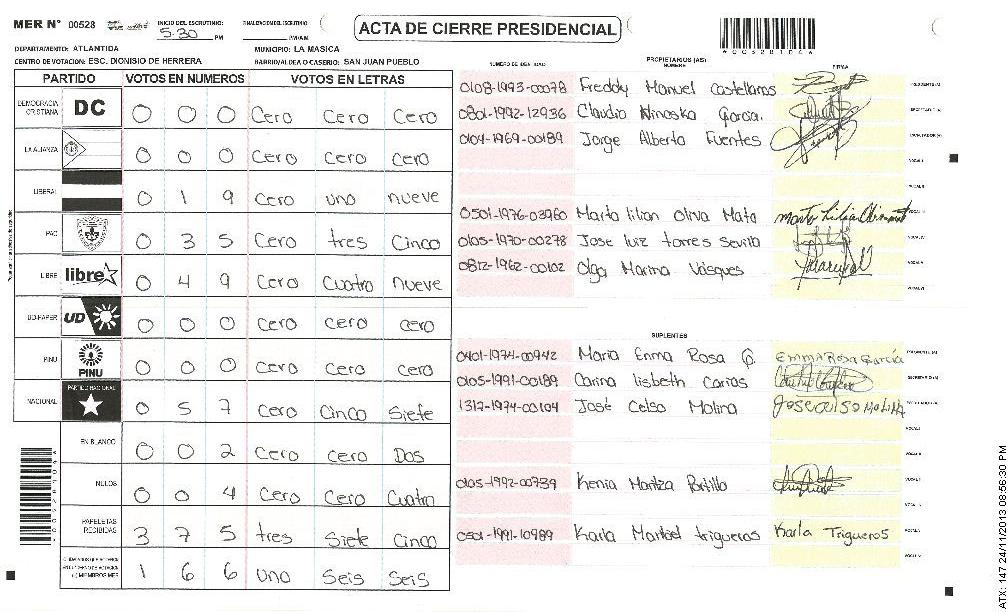 MER N° 00528 INICIO DEL ESCRUTINIO: 5:30 PM FINALIZACION DEL ESCRUTINIO PM/AM
ACTA DE CIERRE PRESIDENCIAL
DEPARTAMENTO: ATLANTIDA MUNICIPIO: LA MASICA
CENTRO DE VOTACION: ESC. DIONISIO DE HERRERA BARRIO/ALDEA O CASERIO: SAN JUAN PUEBLO
PARTIDO VOTOS EN NUMEROS VOTOS EN LETRAS
DEMOCRACIA CRISTIANA DC 0 0 0 Cero Cero Cero
LA ALIANZA 0 0 0 Cero Cero Cero
LIBERAL 0 1 9 Cero uno nueve
PAC 0 3 5 Cero tres Cinco
LIBRE libre 0 4 9 Cero Cuatro nueve
UD-FAPER UD 0 0 0 Cero Cero Cero
PINU PINU 0 0 0 Cero Cero Cero
NACIONAL PARTIDO NACIONAL 0 5 7 Cero Cinco Siete
EN BLANCO 0 0 2 Cero Cero Dos
NULOS 0 0 4 Cero Cero Cuatro
PAPELETAS RECIBIDAS 3 7 5 tres Siete Cinco
1 6 6 uno Seis Seis
NUMERO DE IDENTIDAD PROPIETARIOS (AS) NOMBRE FIRMA
0108-1993-00078 Freddy Manuel Castellanos
0801-1992-12936 Claudio Ninoska Garcia.
0104-1969-00189 Jorge Alberto Fuentes
0501-1976-03960 Marta lilian Oliva Mata
0105-1970-00278 Jose luiz torres Sevilla
0812-1962-00102 Olga Marina Vasques
SUPLENTES
0401-1974-00942 Maria Enma Rosa G. EMMA ROSA García
0105-1991-00189 Carina lisbeth Carias
1312-1974-00104 José Celso Molina
0105-1992-00739 Kenia Maritza Portillo
0501-1991-10989 Karla Maribel trigueros Karla Trigueros
ATX: 147 24/11/2013 08:56:30 PM